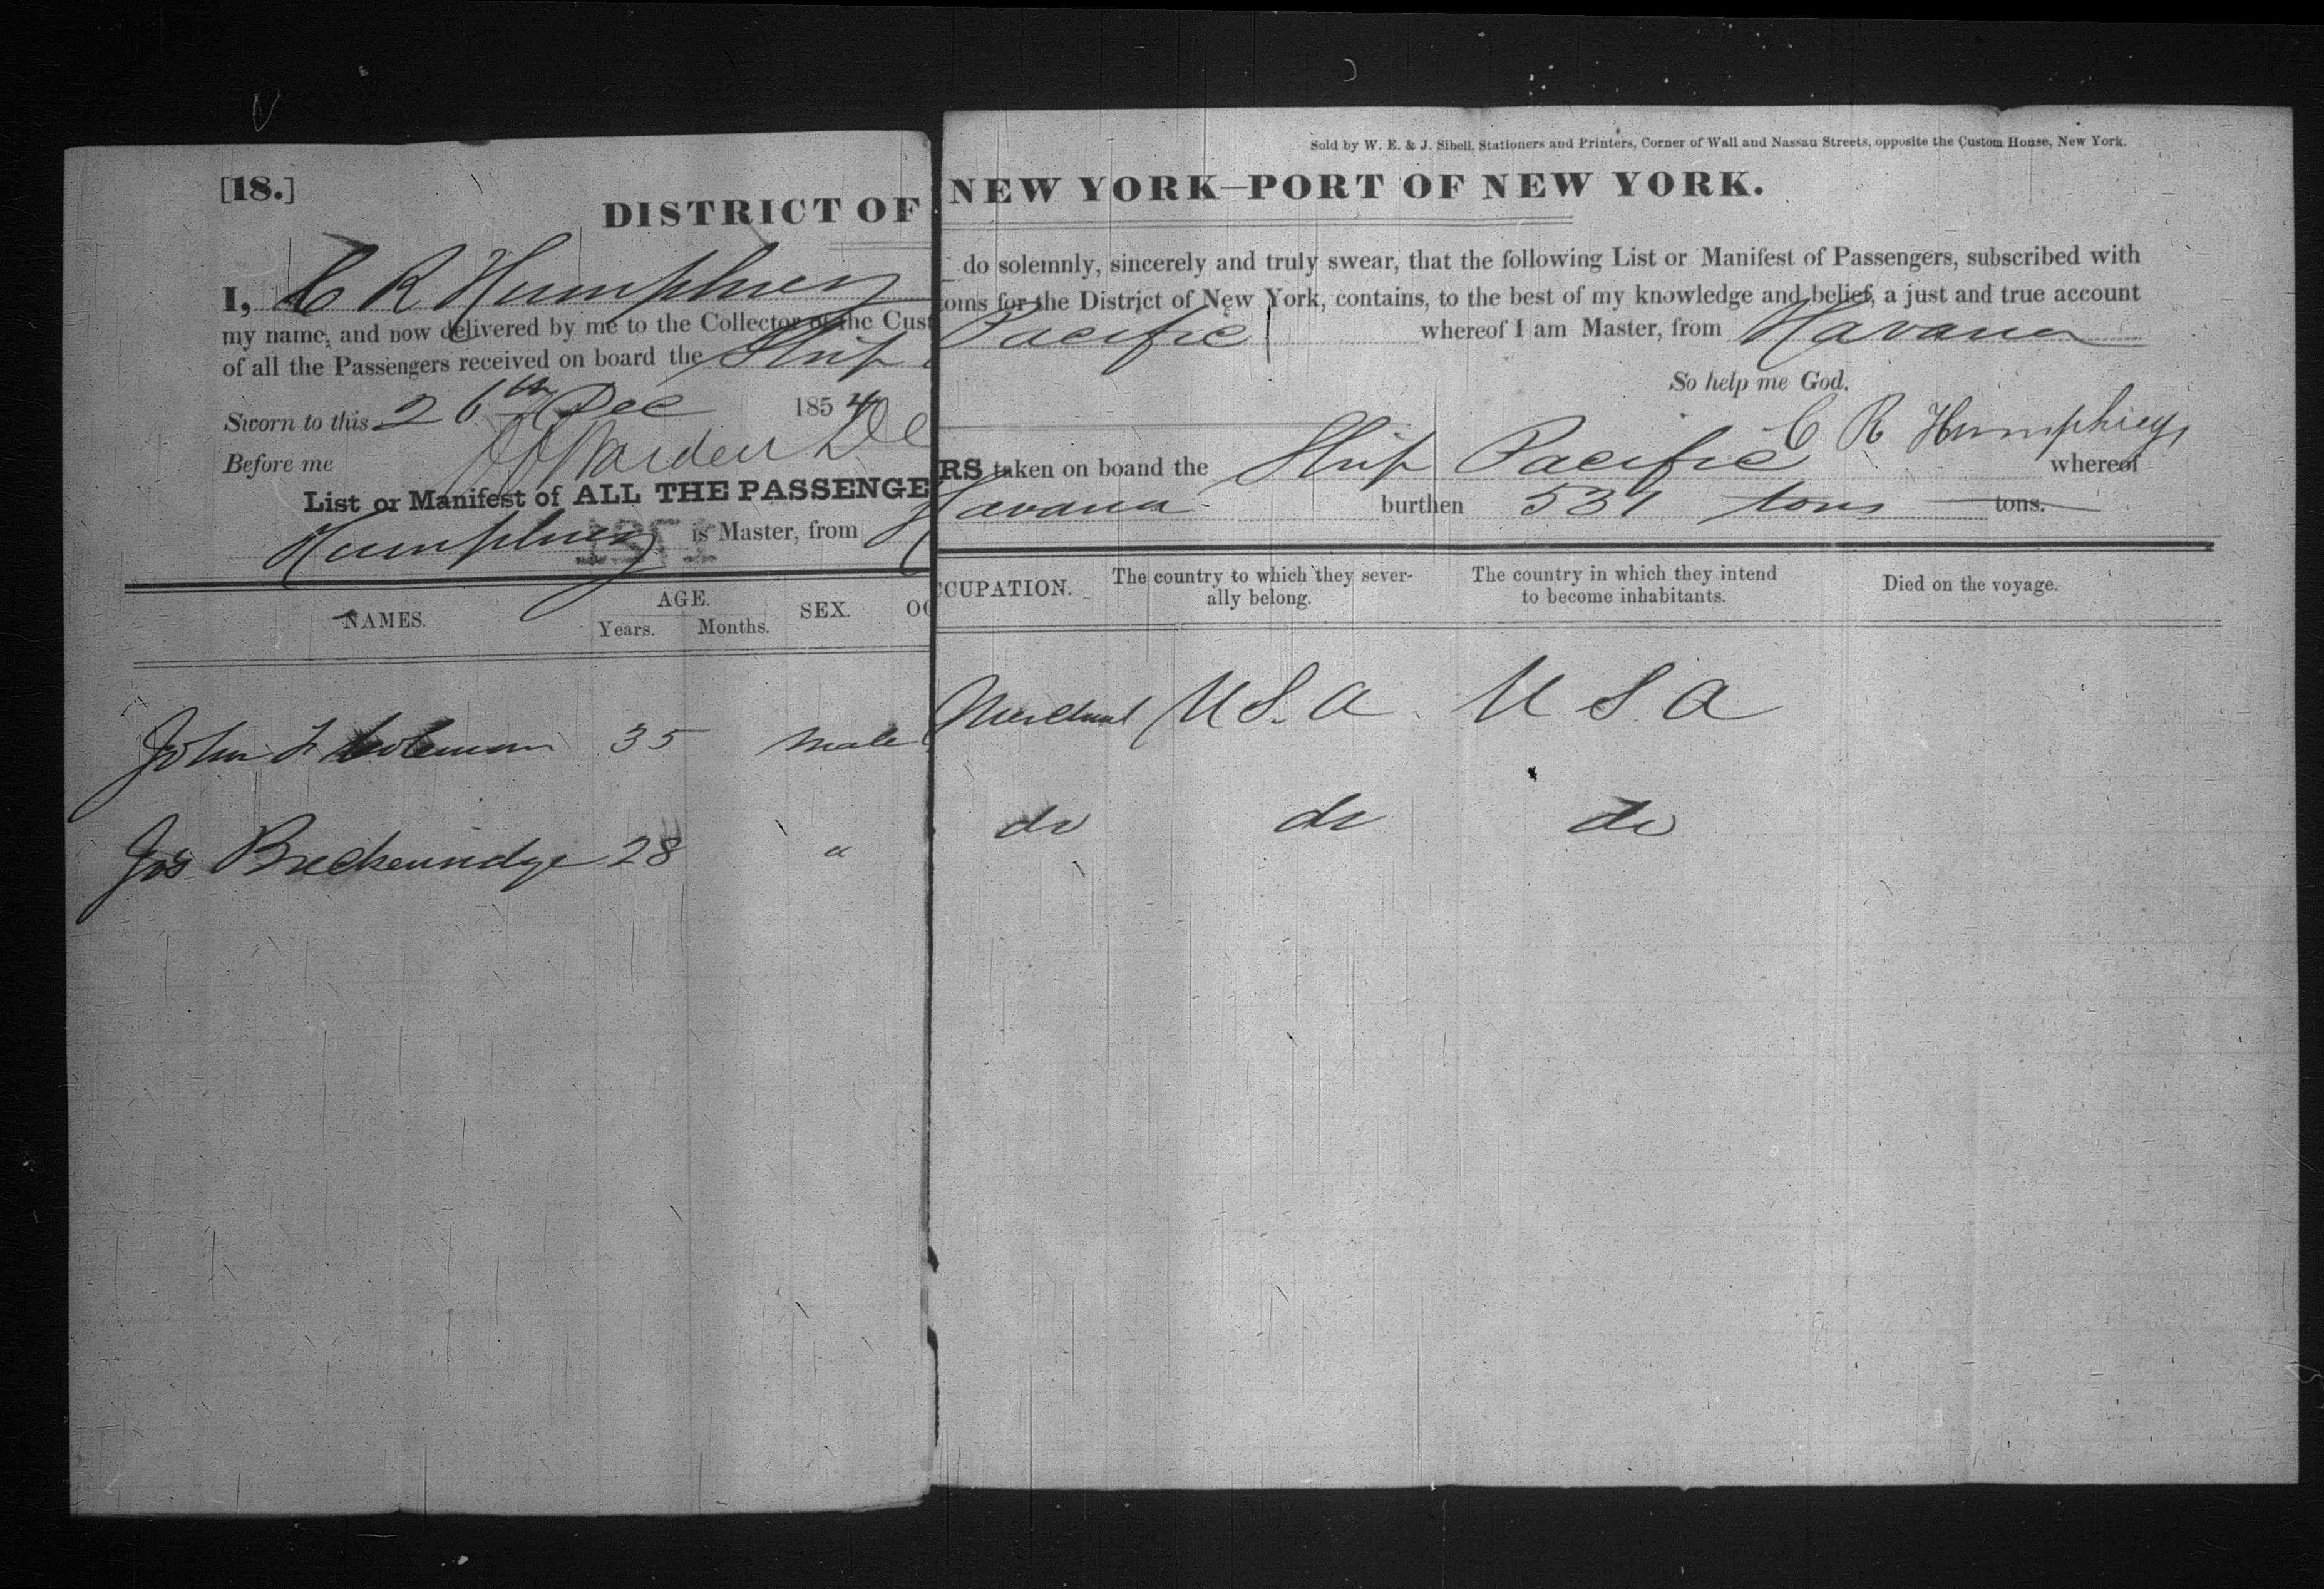 Sold by W. E. & J. Sibell, Stationers and Printers, Corner of Wall and Nassau Streets, opposite the Custom House, New York.
[18.]
DISTRICT OF NEW YORK—PORT OF NEW YORK.
I, C R Humphrey do solemnly, sincerely and truly swear, that the following List or Manifest of Passengers, subscribed with
my name, and now delivered by me to the Collector of the Customs for the District of New York, contains, to the best of my knowledge and belief, a just and true account
of all the Passengers received on board the Ship Pacific whereof I am Master, from Havana
So help me God.
Sworn to this 26th Dec 1854
C R Humphreys
Before me
List or Manifest of ALL THE PASSENGERS taken on boand the Ship Pacific whereof
Humphrey is Master, from Havana burthen 531 tons tons.
NAMES. AGE. Years. Months. SEX. OCCUPATION. The country to which they severally belong. The country in which they intend to become inhabitants. Died on the voyage.
John Coleman 35 Male Merchant U S. A. U S. A
Jos Breckenridge 28 " do do do